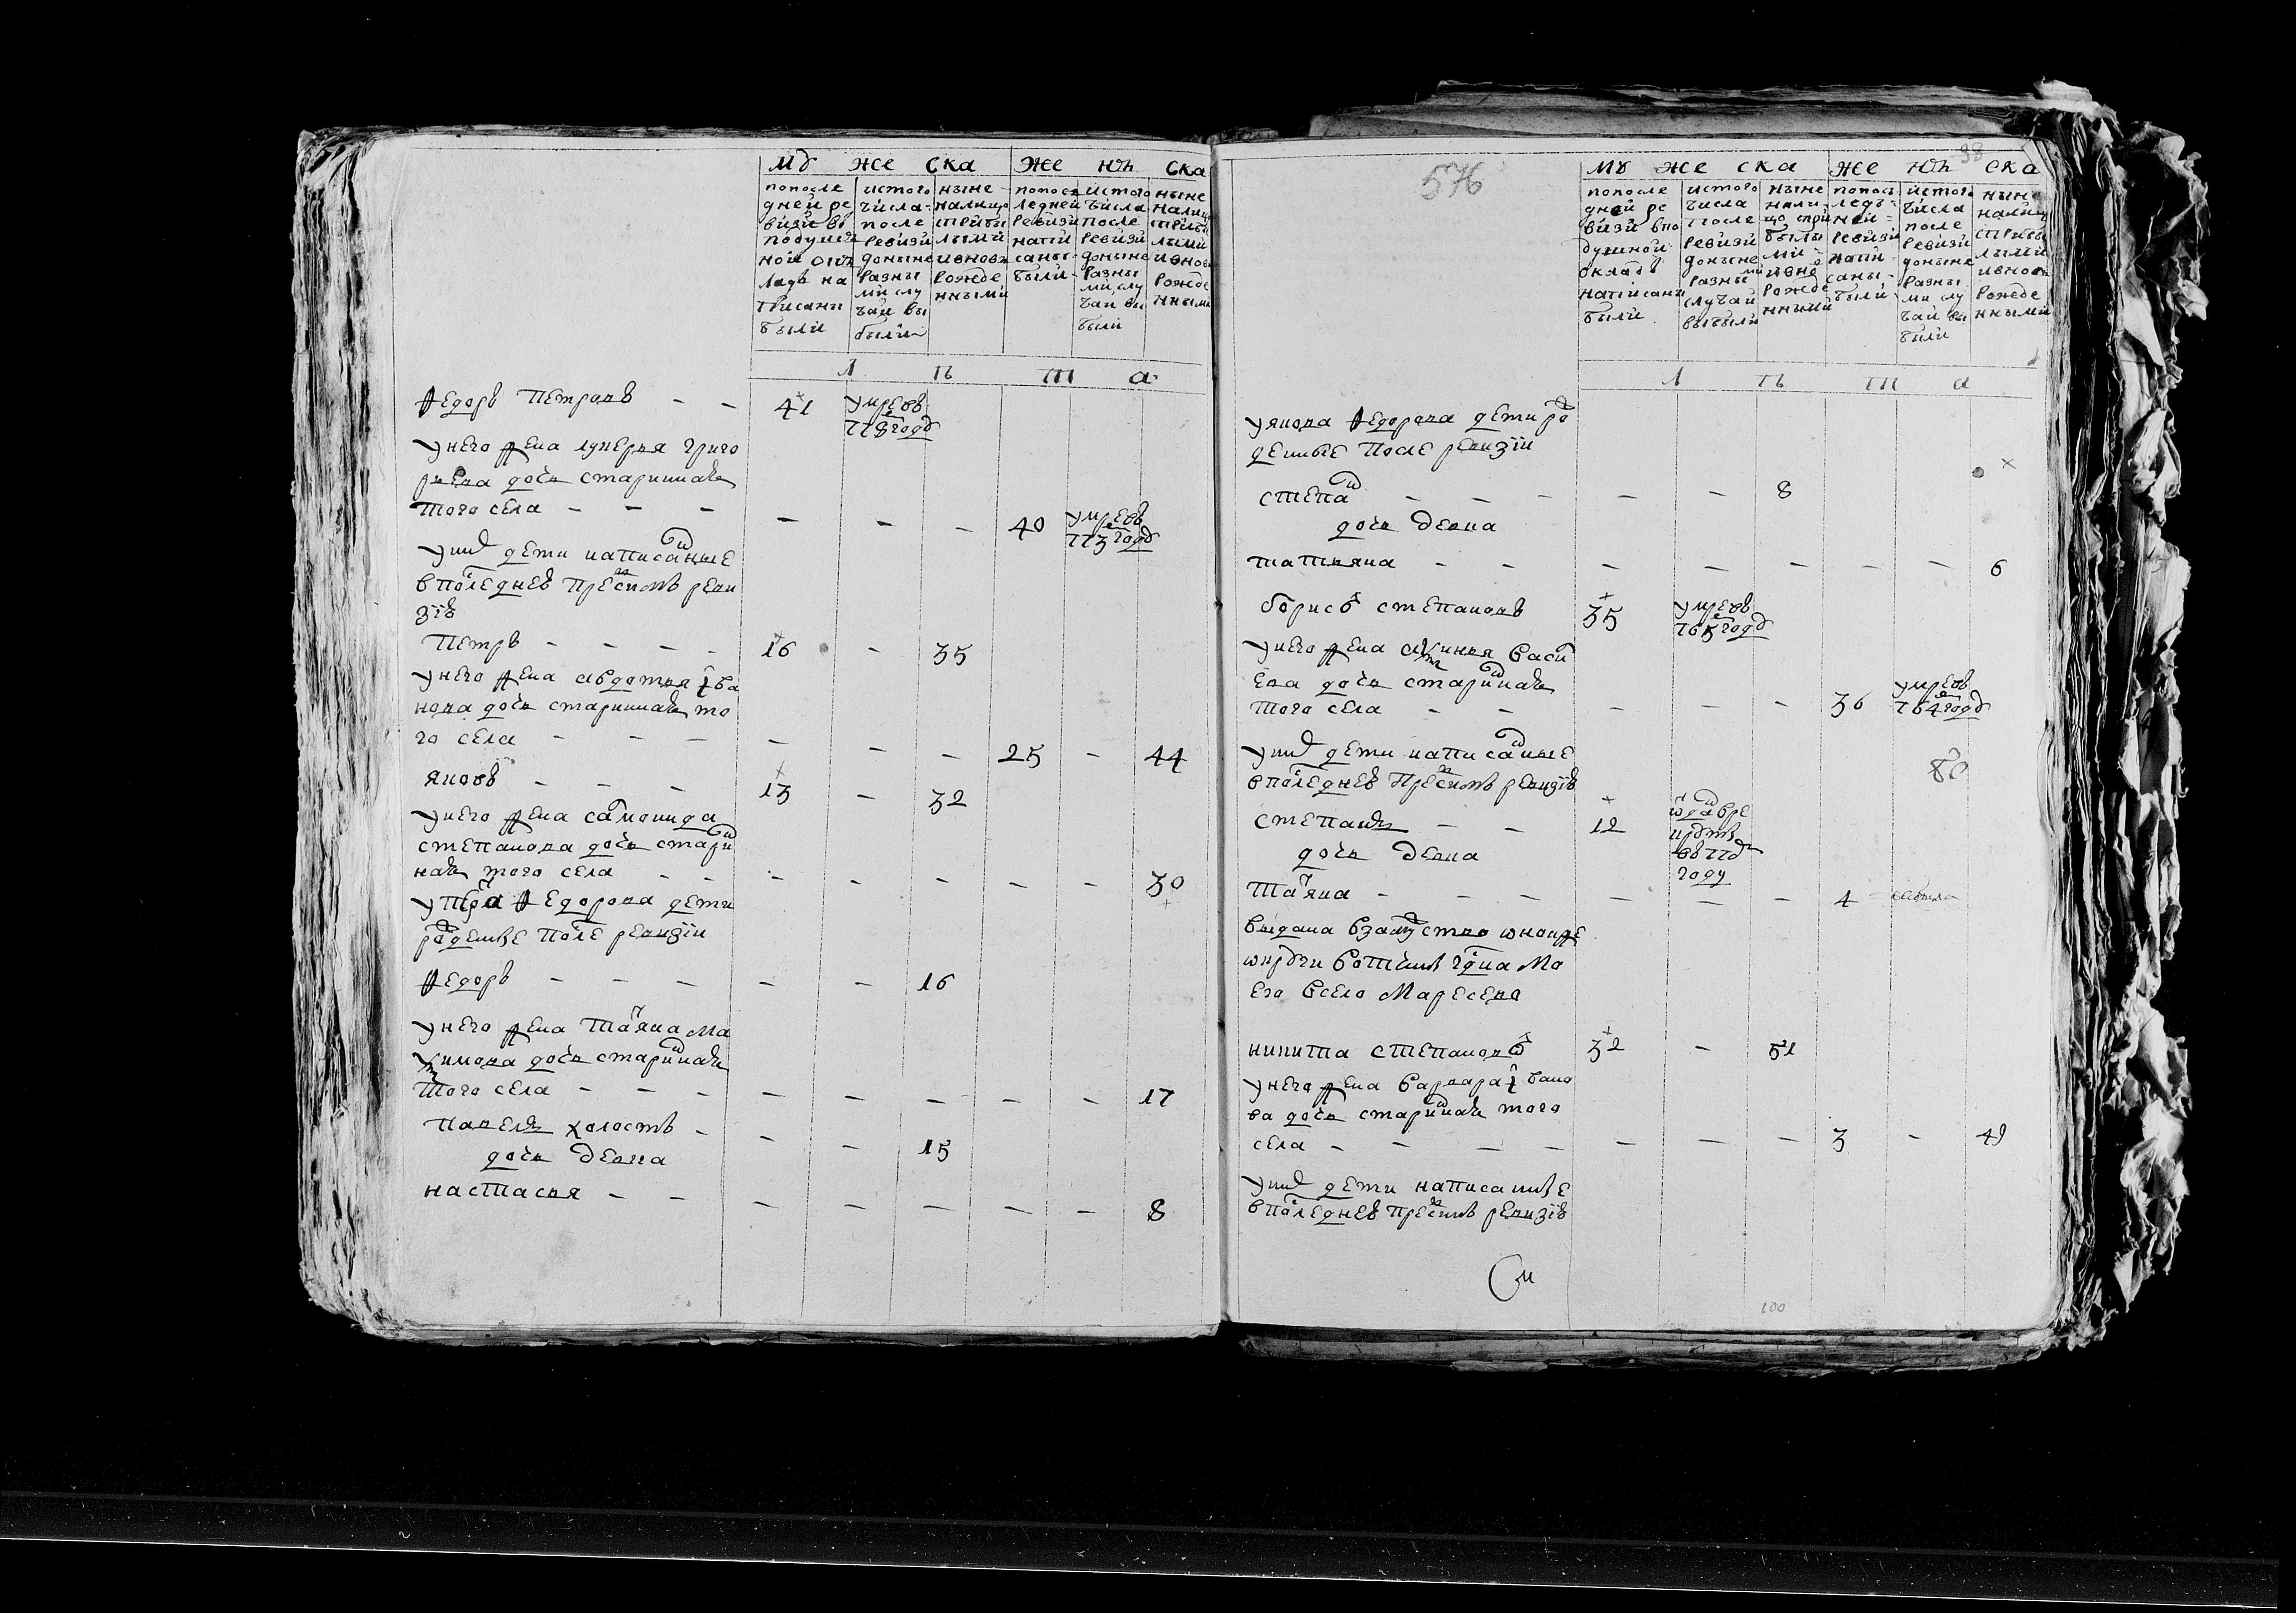 МУ ЖЕ СКА ЖЕ НЬ СКА
попосле
дней ре
визи во
подушей
ной окъ
ладъ на
писаны
были
истого
числа
после
ревизи
доныне
разны
ми слу
чаи вы
были
ныне
налицо
сприбы
лыми
ивновь
рожде
нными
попос
ледней
ревизи
напи
саны
были
истого
числа
после
ревизи
доныне
разны
ми слу
чаи вы
были
ныне
налиц
сприбы
лыми
ивновь
рожде
нными
Л Ѣ Т А
Федоръ Петровъ — — 41 умре въ
778 годѣ
у него жена лукерья григо
рьева дочь старинная
того села — — — — — — 40 умре въ
773 годѣ
у них дети написанные
в последнев пре сим ревизи
зiѣ
Петръ — — — — 16 — 35
у него жена авдотья iва
нова дочь старинная то
го села — — — — — — 25 — 44
яковъ — — — 13 — 32
у него жена саломонида
степанова дочь стари
ная того села — — — — — — — 30
у Петра Федорова дети
рожденые после ревизiи
Федоръ — — — — — 16
у него жена татьяна Ма
ѯимова дочь старинная
того села — — — — — — — — 17
Павелъ холостъ — — — 15
дочь девка
настасья — — — — — — — 8
576
98
МУ ЖЕ СКА ЖЕ НЬ СКА
попосле
дней ре
визи впо
душной
окладъ
написаны
были
истого
числа
после
ревизи
доныне
разны ми
случаи
выбыли
ныне
нали
цо спри
былы
ми
ивно
рожде
нными
попос
ледъ
ней
ревизи
напи
саны
были
истого
числа
после
ревизи
доныне
разны
ми слу
чаи вы
были
ныне
налиц
сприбы
лыми
ивновь
рожде
нными
Л Ѣ Т А
у якова Федорова дети ро
жденные После ревизiи
степан — — — — — 8
дочь девка
татьяна — — — — — — — 6
борисъ степановъ 35 умре въ
765 годѣ
у него жена аѯинья Васи
ева дочь старинная
того села — — — — — 36 умре въ
764 годѣ
у них дети написаные
в последнев Пре сим ревизiѣ
80
степанъ — — 12 отдан в ре
круты
въ 77
году
дочь девка
татьяна — — — — — — — 4 —
выдана взамужство
Его Всело Маресево
никита степановъ 32 — 51
у него жена варвара iвано
ва дочь старинная того
села — — — — — — — 3 — 49
у них дети написанные
в последнев пре сим ревизiѣ
100